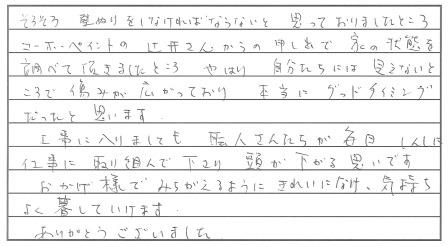 そろそろ 壁ぬりをしなければならないと 思っておりましたところ
コーホーペイントの 辻井さんからの 申し出で 家の状態を
調べて頂きましたところ やはり 自分たちには 見えないと
ころで 傷みが 広がっており 本当に グッドタイミング
だったと 思います.
工事に入りましても 職人さんたちが 毎日 しんしに
仕事に 取り組んで下さり 頭が下がる思いです
おかげ様で みちがえるように きれいになり、気持ち
よく暮していけます.
ありがとうございました.